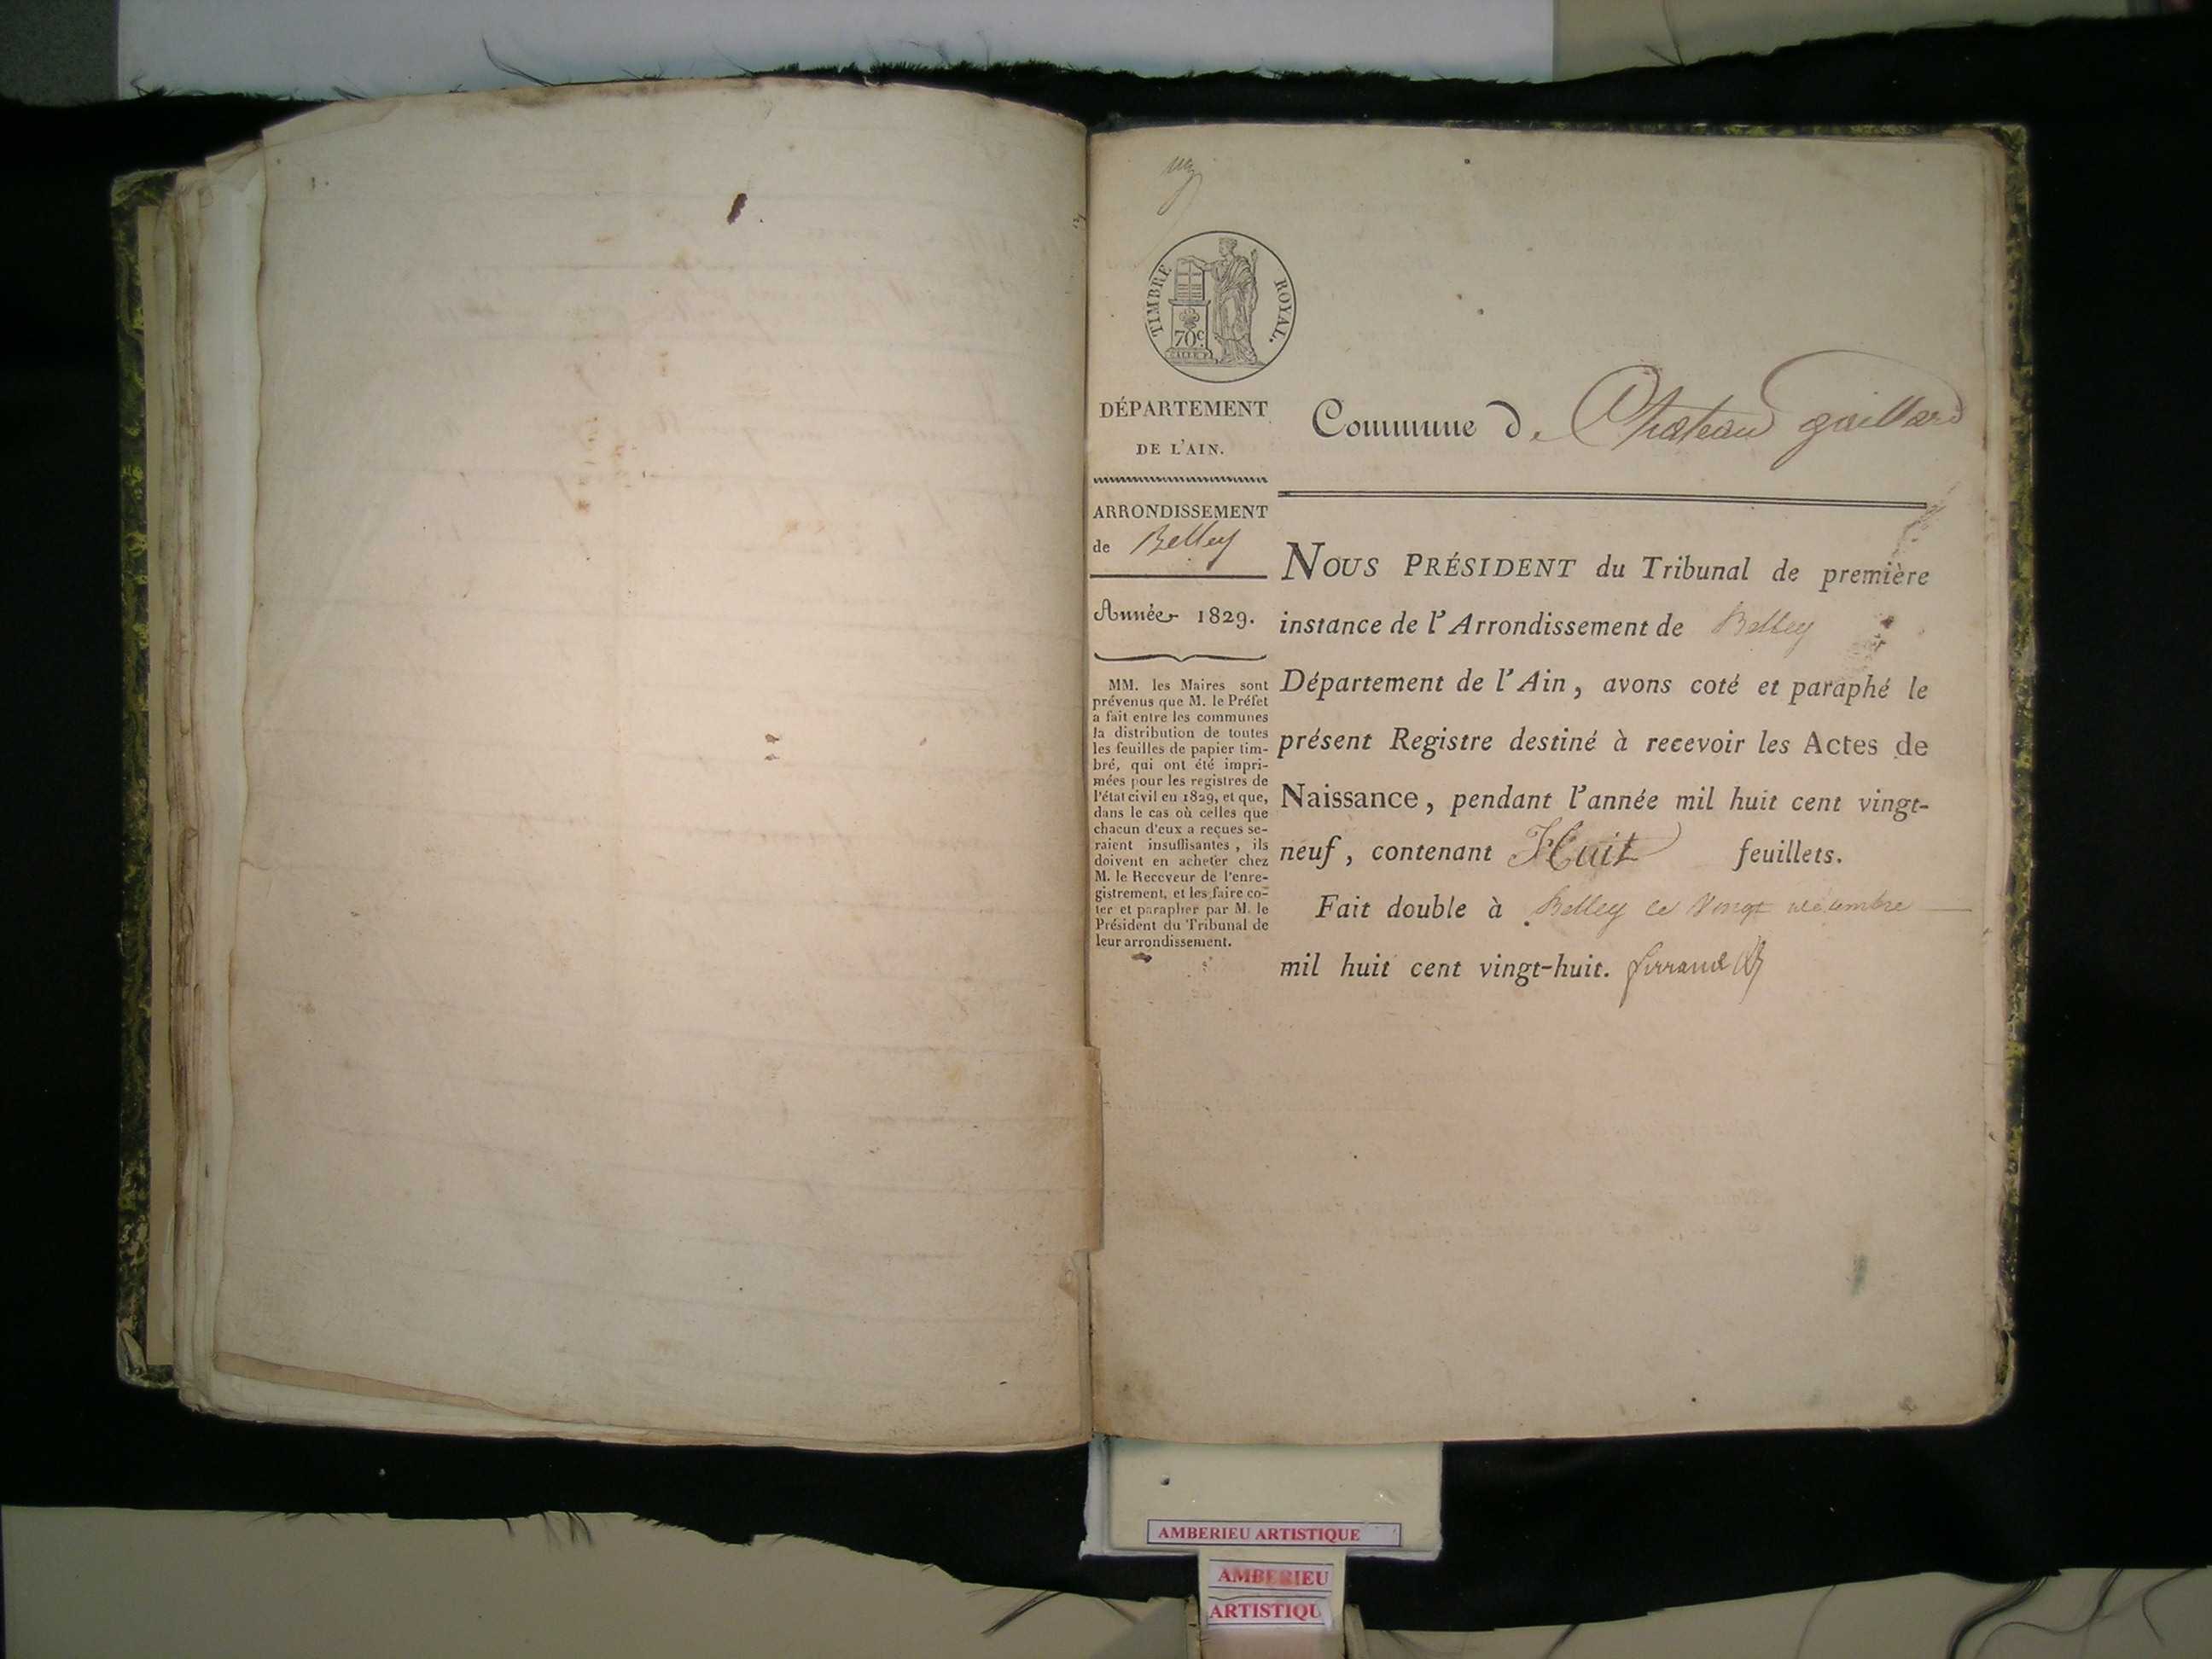 TIMBRE ROYAL.
70c.
DÉPARTEMENT
DE L'AIN.
ARRONDISSEMENT
de Belley
Année 1829.
MM. les Maires sont
prévenus que M. le Préfet
a fait entre les communes
la distribution de toutes
les feuilles de papier tim-
bré, qui ont été impri-
mées pour les registres de
l'état civil en 1829, et que,
dans le cas où celles que
chacun d'eux a reçues se-
raient insuffisantes, ils
doivent en acheter chez
M. le Receveur de l'enre-
gistrement, et les faire co-
ter et parapher par M. le
Président du Tribunal de
leur arrondissement.
Commune de Chateau gaillard
NOUS PRÉSIDENT du Tribunal de première
instance de l'Arrondissement de Belley
Département de l'Ain, avons coté et paraphé le
présent Registre destiné à recevoir les Actes de
Naissance, pendant l'année mil huit cent vingt-
neuf, contenant Huit feuillets.
Fait double à Belley ce Vingt décembre
mil huit cent vingt-huit.
AMBERIEU ARTISTIQUE
AMBERIEU
ARTISTIQU